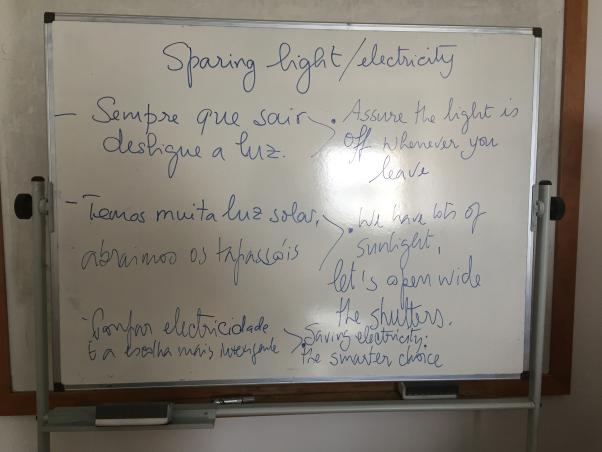 Sparing light/electricity
- Sempre que sair
desligue a luz.
• Assure the light is
off whenever you
leave
- Temos muita luz solar,
abraimos os tapassóis
• We have lots of
sunlight,
let's open wide
the shutters.
- Poupar electricidade
É a escolha mais inteligente
• Saving electricity:
the smarter choice